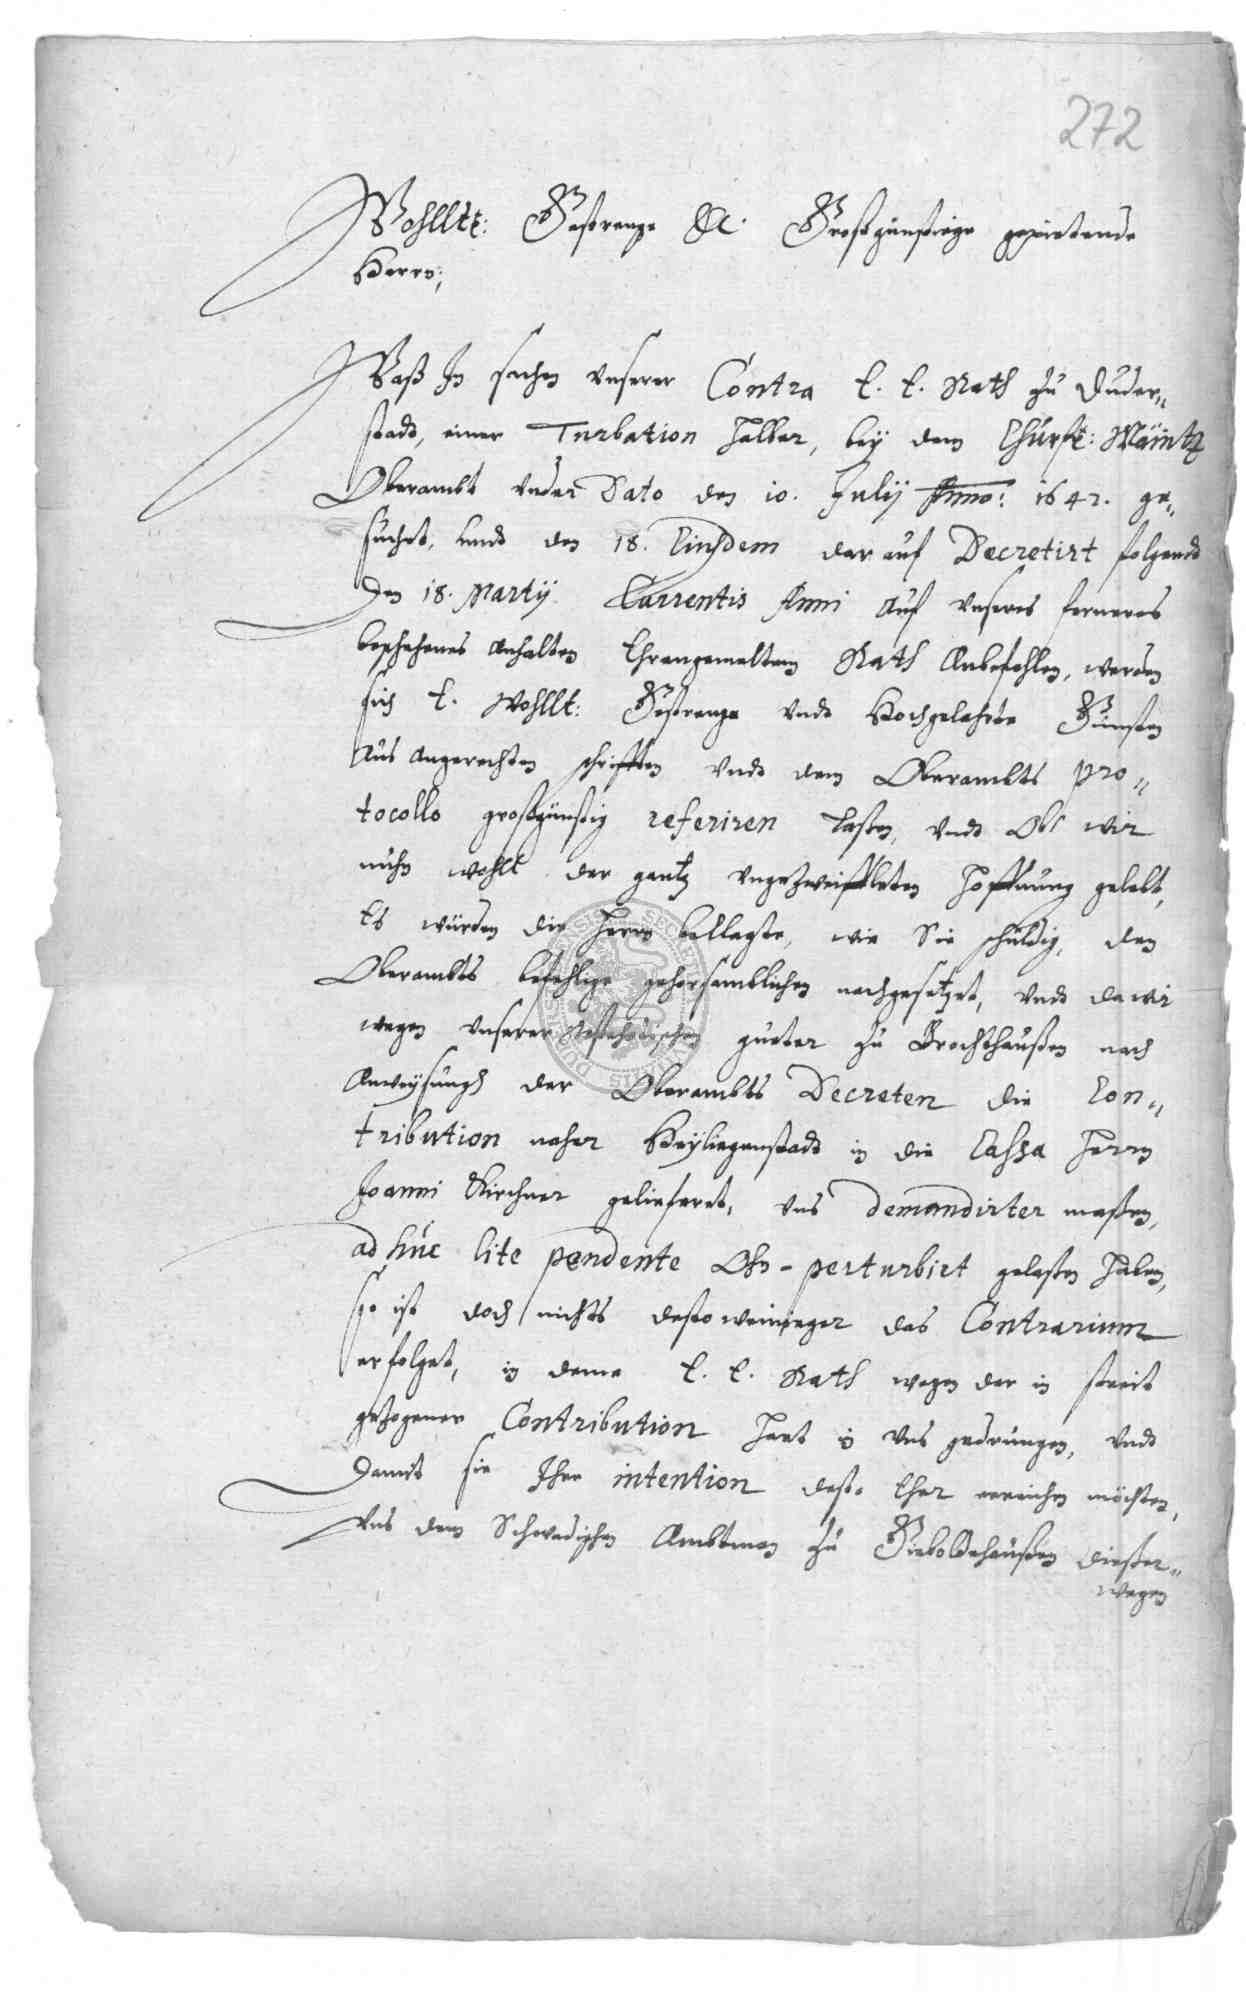 272
Wohlltt: Gestrenge &c. Großgünstige gepietende
Herrn;
Waß In sachen unserer Contra E. E. Rath zu Duder-
stadt, einer Turbation halber, bey dem Churf: Mäintz
Oberambt under Dato den 10. Julij Anno: 1642. ge-
suchet, undt den 18. Eiusdem darauf Decretirt folgendt
Den 18. Martij Currentis Anni auf unseres ferneres
beschehenes anhalten Ehrengemeltem Rath Anbefohlen, werden
sich E. Wohllt: Gestrenge undt Hochgelahrte Gunsten
aus angerechten schrifften undt dem Oberambts pro-
tocollo großgünstig referiren laßen, undt Obe wir
nuhn wohll der gantz ungezweiffleten hoffnung gelebt,
Es würden die herrn beklagte, wie Sie schuldig, den
Oberambts befehlige gehorsamblichen nachgesetzet, undt da wir
wegen unserer gueter zu Brochthaußen nach
Anweysungh der Oberambts Decreten die Con-
tribution naher Heyliegenstadt in die Cassa herrn
Joanni Kirchner gelieferet, uns demandirter maßen,
adhuc lite pendente Ohn-perturbirt gelaßen haben,
so ist doch nichts desto weinieger das Contrarium
erfolget, in deme E. E. Rath wegen der in streit
gezogener Contribution hart in uns gedrungen, undt
Damit sie Ihre intention desto Eher erreichen möchten,
uns dem Schwedischen Ambtman zu Gieboldehaußen dießer-
wegen